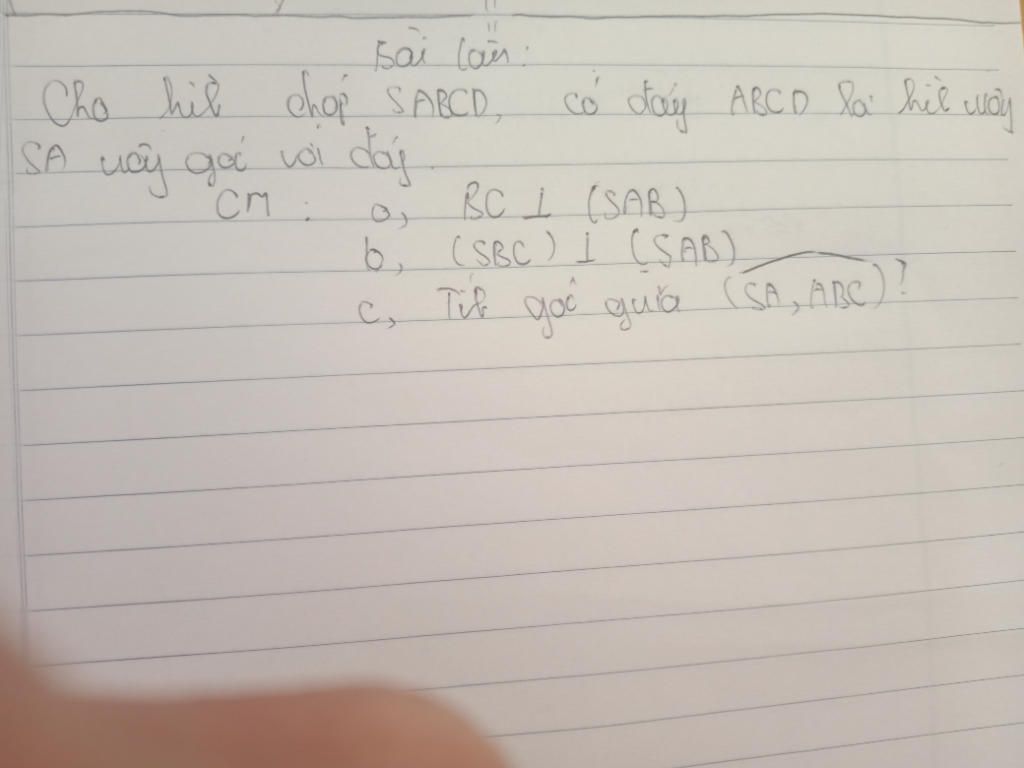 Bài làm:
Cho hìh chóp SABCD, có đáy ABCD là hìh vuôg
SA vuôg góc với đáy.
CM: a, BC ⊥ (SAB)
b, (SBC) ⊥ (SAB)
c, Tíh góc giữa (SA, ABC)?